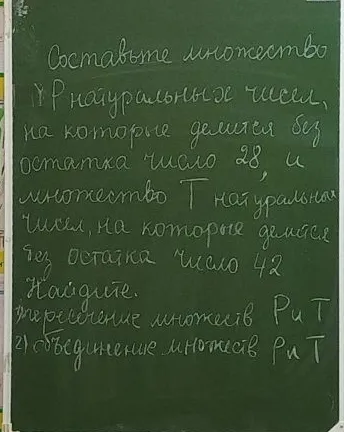 Составьте множество
P натуральных чисел,
на которые делится без
остатка число 28, и
множество T натуральных
чисел, на которые делится
без остатка число 42
Найдите.
1) пересечение множеств P и T
2) объединение множеств P и T